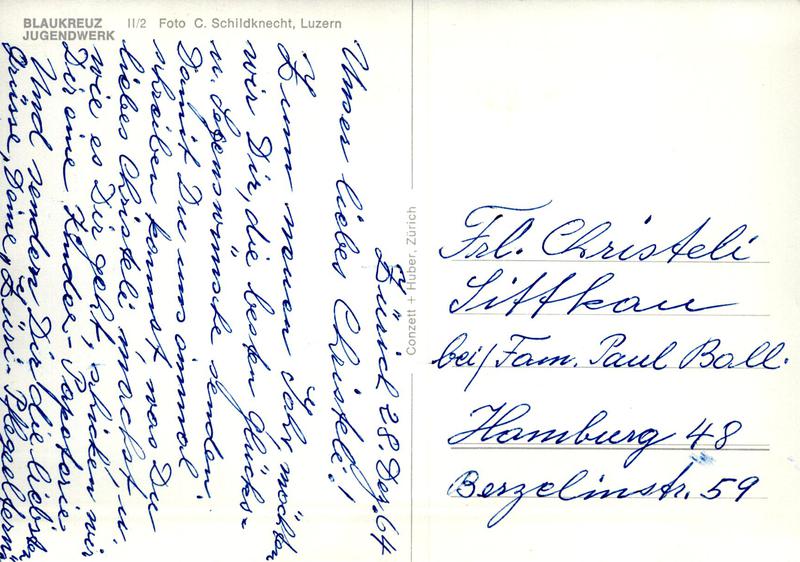 BLAUKREUZ II/2 Foto C. Schildknecht, Luzern
JUGENDWERK
Zürich 28. Dez. 64
Unser liebes Christeli!
Zum neuen Jahr möchten
wir Dir, die besten Glücks-
u. Segenswünsche senden.
Damit Du uns einmal
schreiben kannst, was Du
liebes Christeli machst u.
wie es Dir geht, schicken wir
Dir eine Kinder-Papeterie
Und senden Dir die liebsten
Grüsse, Deine, Züri-Pflegeeltern
Conzett + Huber, Zürich
Frl. Christeli
Siffkau
bei/Fam. Paul Ball.
Hamburg 48
Berzelinstr. 59